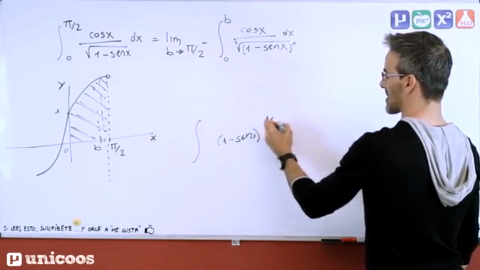 ∫₀^{π/2} cosx/√(1-senx) dx = lim_{b→π/2⁻} ∫₀^b cosx/√(1-senx) dx
y
1
0 b π/2 x
∫ (1-senx)
SI LEES ESTO, SUSCRÍBETE... Y DALE A "ME GUSTA"
μ unicoos
μ x²